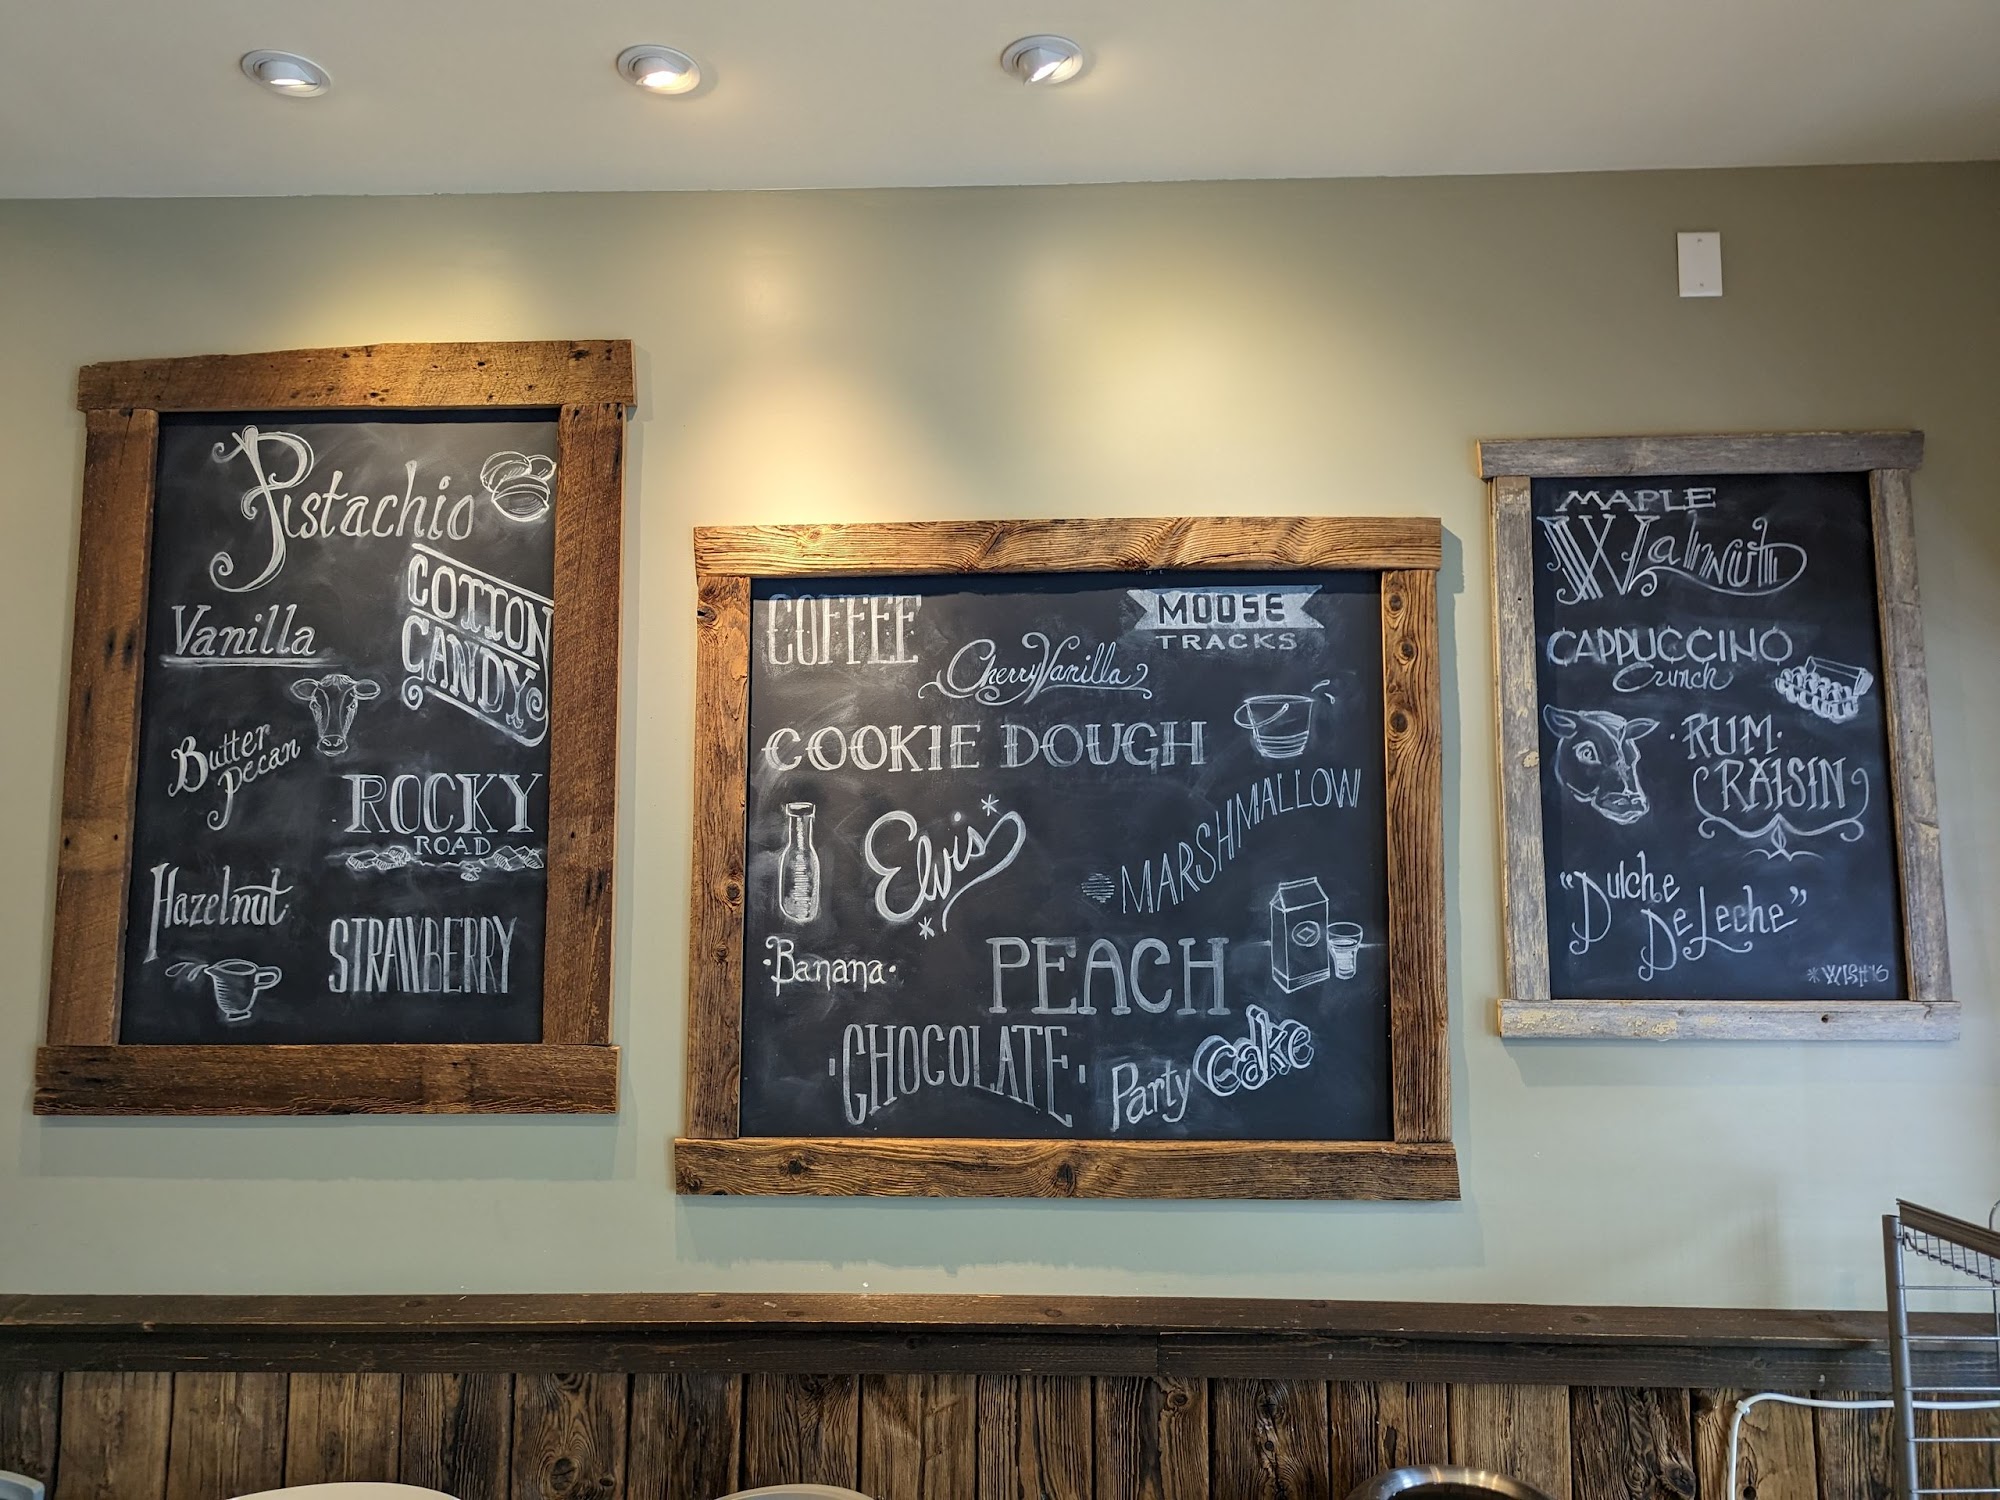 Pistachio
COTTON
CANDY
Vanilla
Butter
Pecan
ROCKY
ROAD
Hazelnut
STRAWBERRY
COFFEE
MOOSE
TRACKS
Cherry Vanilla
COOKIE DOUGH
MARSHMALLOW
Elvis
·Banana·
PEACH
CHOCOLATE
Party Cake
MAPLE
Walnut
CAPPUCCINO
Crunch
·RUM·
RAISIN
"Dulche
De Leche"